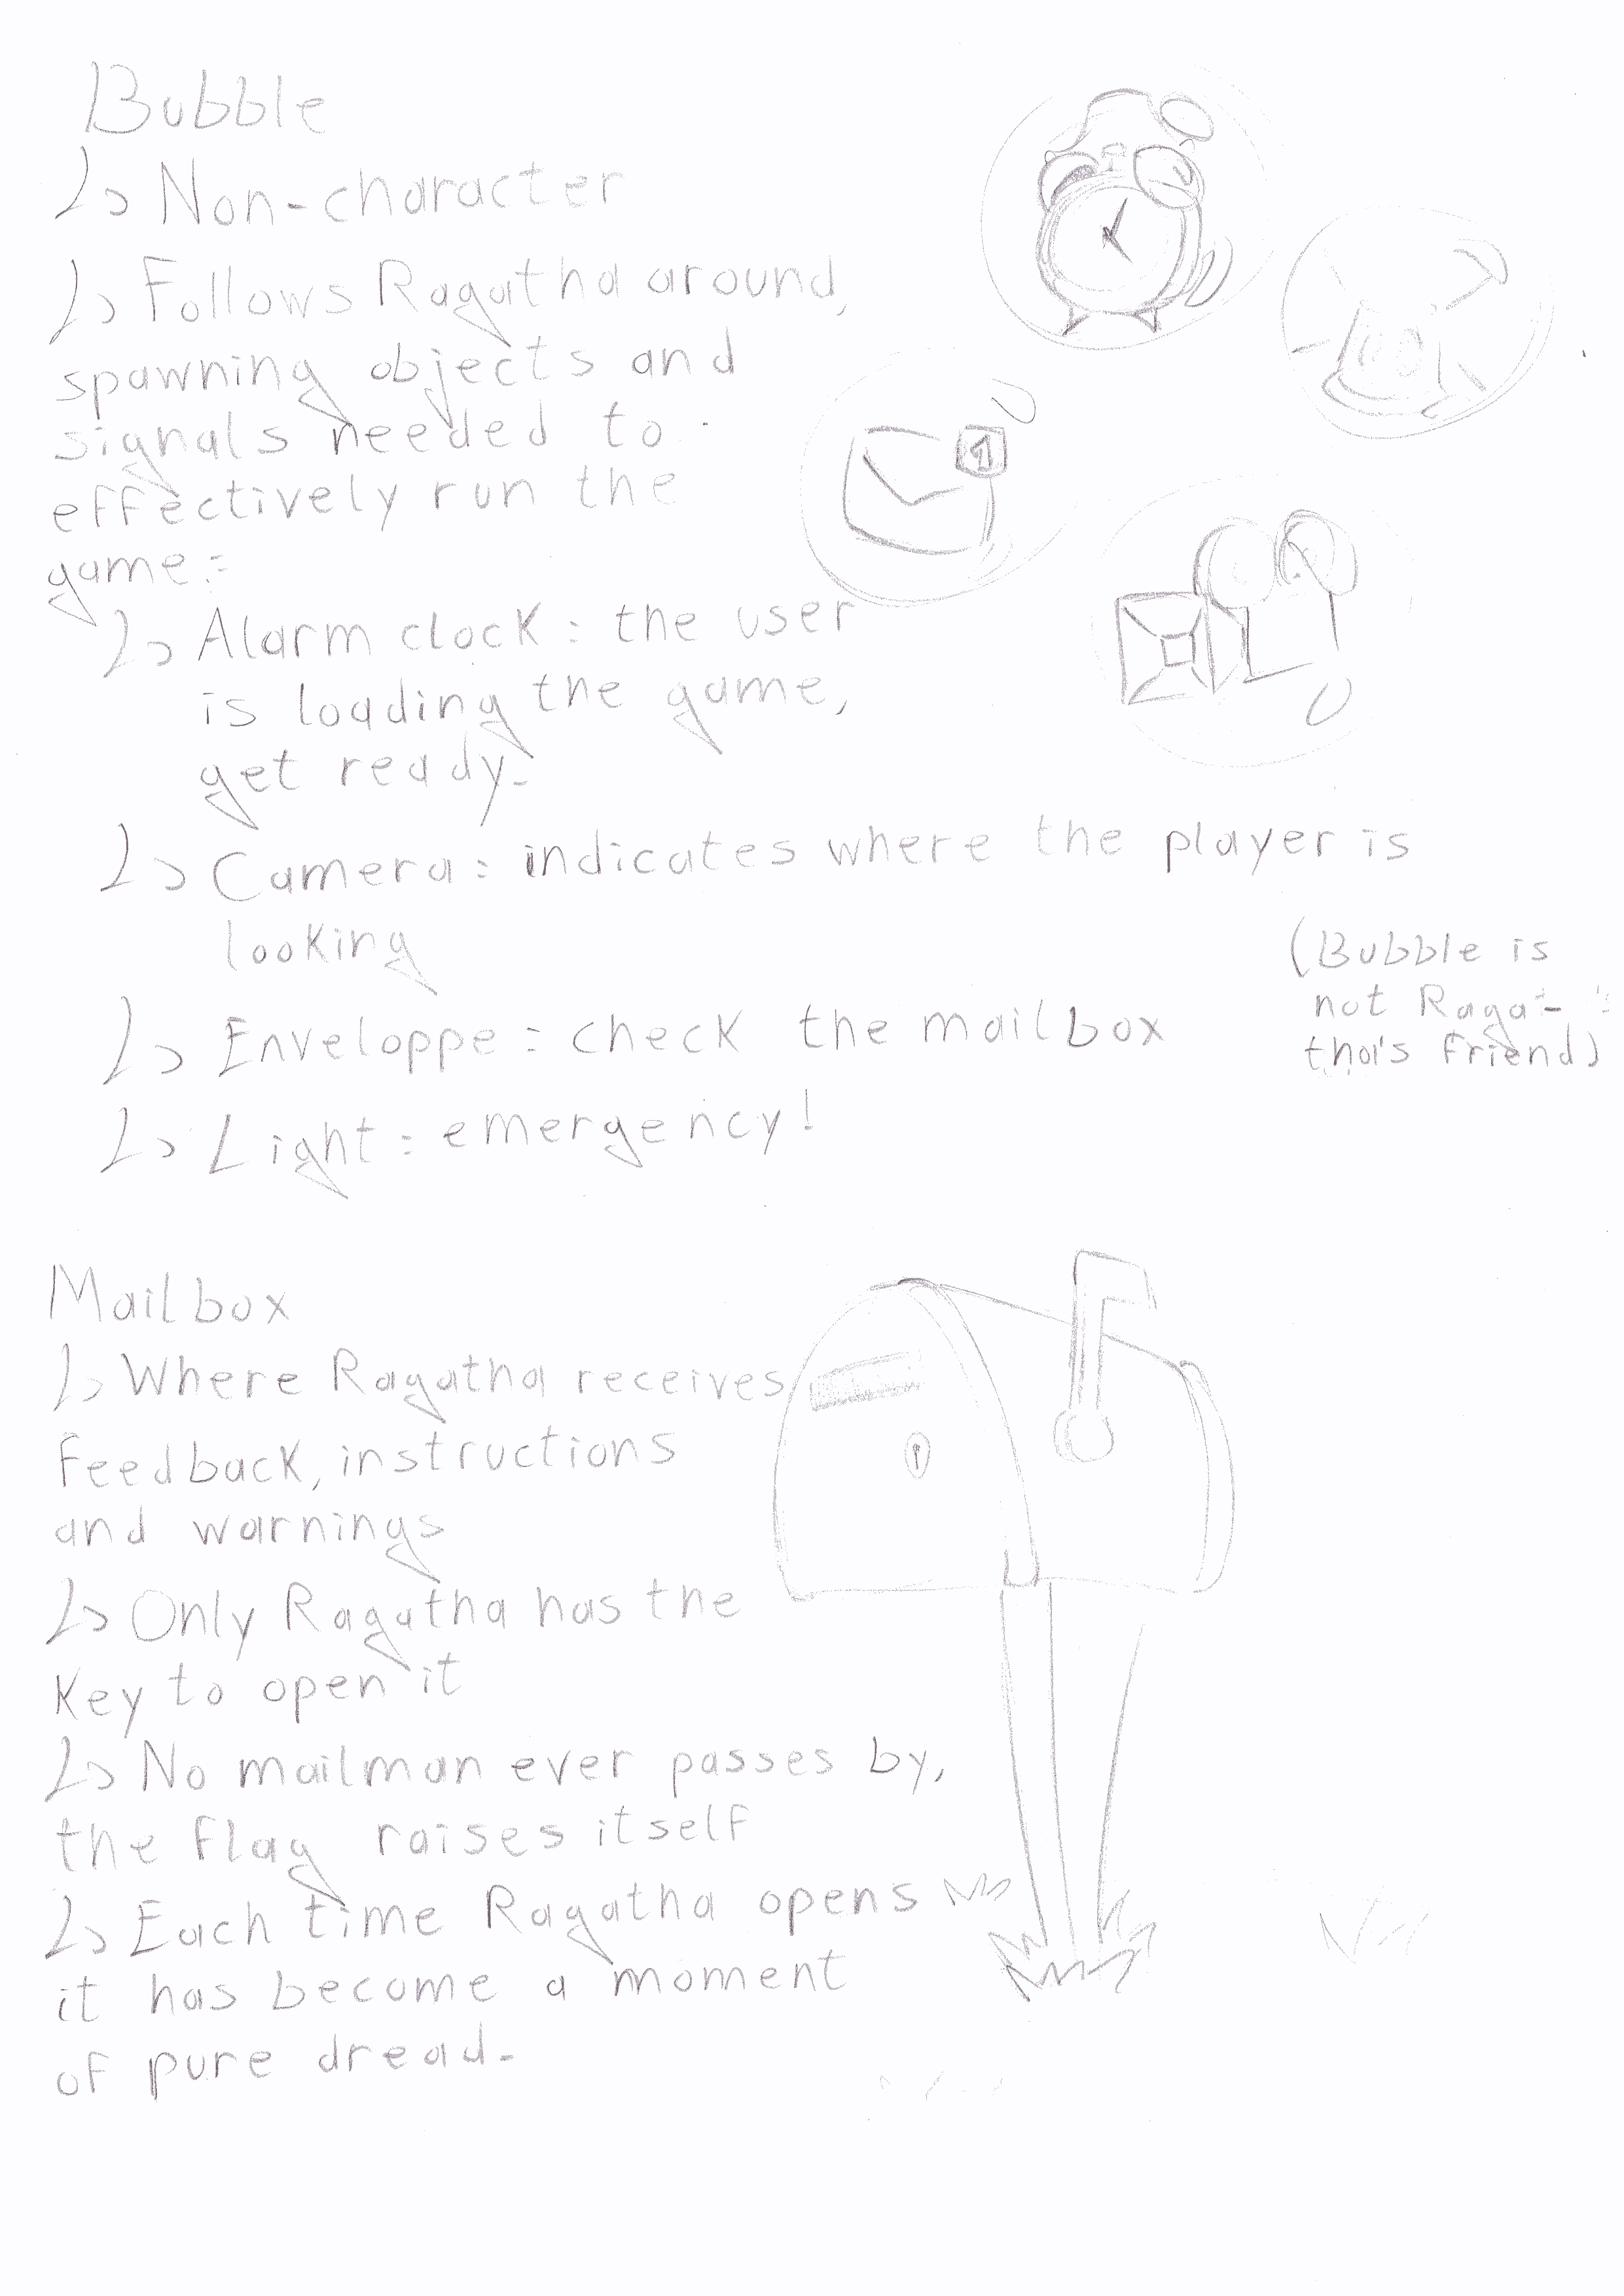 Bubble
↳ Non-character
↳ Follows Ragatha around,
spawning objects and
signals needed to
effectively run the
game:
↳ Alarm clock: the user
is loading the game,
get ready.
↳ Camera: indicates where the player is
looking
(Bubble is
not Raga-
tha's friend)
↳ Enveloppe: check the mailbox
↳ Light: emergency!
1
Mailbox
↳ Where Ragatha receives
feedback, instructions
and warnings
↳ Only Ragatha has the
key to open it
↳ No mailman ever passes by,
the flag raises itself
↳ Each time Ragatha opens
it has become a moment
of pure dread.